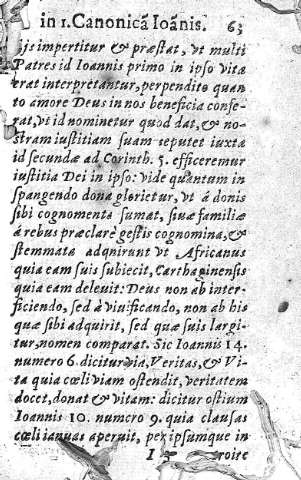 in 1. Canonicā Ioānis. 63
ijs impertitur & præstat, vt multi
Patres id Ioannis primo in ipso vita
erat interpretantur, perpendito quan
to amore Deus in nos beneficia confe-
rat, vt id nominetur quod dat, & no-
stram iustitiam suam reputet iuxta
id secundæ ad Corinth. 5. efficeremur
iustitia Dei in ipso: vide quantum in
spangendo dona glorietur, vt á donis
sibi cognomenta sumat, siuæ familiæ
á rebus præclarè gestis cognomina, &
stemmata adqnirunt vt Africanus
quia eam suis subiecit, Carthaginensis
quia eam deleuit: Deus non ab inter-
ficiendo, sed à viuificando, non ab his
quæ sibi adquirit, sed quæ suis largi-
tur, nomen comparat. Sic Ioannis 14.
numero 6. dicitur via, Veritas, & Vi-
ta quia cœli viam ostendit, veritatem
docet, donat & vitam: dicitur ostium
Ioannis 10. numero 9. quia clausas
cœli ianuas aperuit, per ipsumque in
I troite